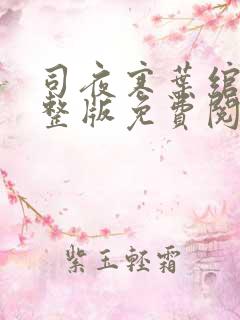 司夜寒葉綰
整版免費閱
紫玉輕霜